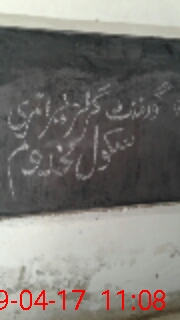 گورنمنٹ گرلز پرائمری
سکول مخدوم
9-04-17 11:08